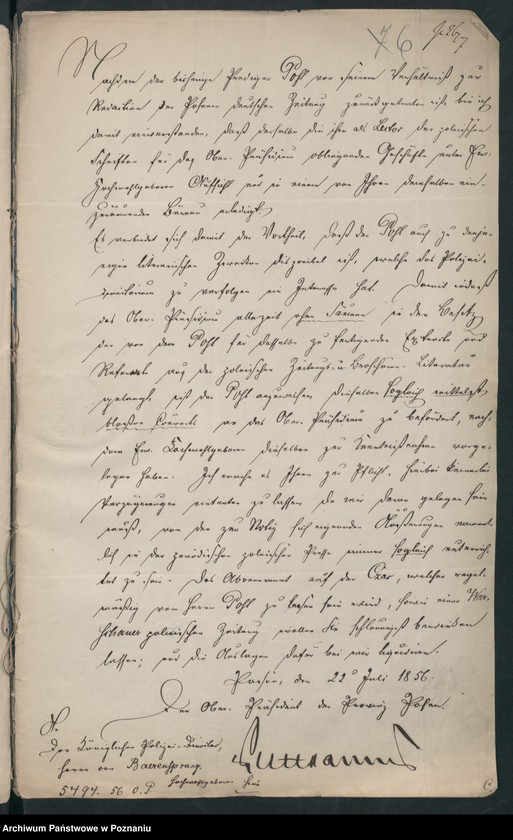 6
Nachdem der bisherige Prediger Pohl von seinem Verhältniß zur
Redaktion der Posener deutschen Zeitung zurückgetreten ist, bin ich
damit einverstanden, daß derselbe die ihm als Lector der polnischen
Schriften bei dem Ober-Präsidio obliegenden Geschäfte unter Ew.
Hochwohlgeboren Aufsicht nur in einem von Ihnen demselben ein-
zuräumenden Büreau erledigt.
Es verbindet sich damit der Vortheil, daß der Pohl auch zu denje-
nigen literarischen Zwecken disponibel ist, welche das Polizei-
Direktorium zu verfolgen ein Interesse hat. Damit indeß
das Ober-Präsidium allezeit ohne Säumen in den Besitz
der von dem Pohl für dasselbe zu fertigenden Extracte und
Referate aus der polnischen Zeitungs- u Broschüren-Literatur
gelangt, ist der Pohl anzuweisen dieselben sogleich mittelst
bloßen Couverts an das Ober-Präsidium zu befördern, nach-
dem Ew. Hochwohlgeboren dieselben zur Kenntnißnahme vorge-
legen haben. Ich mache es Ihnen zur Pflicht, hierbei keinerlei
Verzögerungen eintreten zu lassen, da mir daran gelegen sein
muß, von den zur Notiz sich eignenden Äußerungen nament-
lich in der periodischen polnischen Presse immer sogleich unterrich-
tet zu sein. Das Abonnement auf den Czas, welcher regel-
mäßig von Herrn Pohl zu lesen sein wird, sowie einer War-
schauer polnischen Zeitung wollen Sie schleunigst bewirken
lassen; und die Auslagen dafür bei mir liquidiren.
Posen, den 22 Juli 1856.
Der Ober-Präsident der Provinz Posen.
An
den Königlichen Polizei-Direktor,
Herrn von Baerensprung
Hochwohlgeboren hier
5494. 56 O.P.
Archiwum Państwowe w Poznaniu